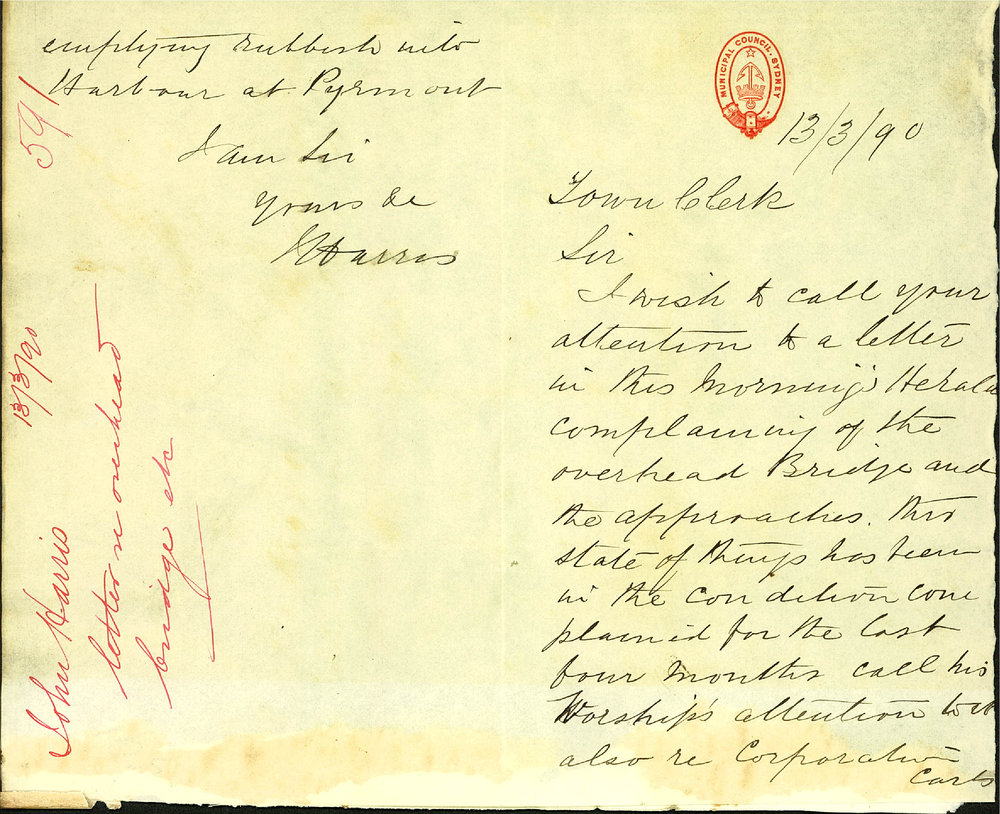 MUNICIPAL COUNCIL. SYDNEY
13/3/90
Town Clerk
Sir
I wish to call your
attention to a letter
in this Morning's Herald
complaining of the
overhead Bridge and
the approaches. this
state of things has been
in the condition com
plained for the last
four months call his
Worship's attention to it
also re Corporation
Carts
emptying rubbish into
Harbour at Pyrmont
I am Sir
yours &c
J Harris
591
John Harris 13/3/90
letter re overhead
bridge etc